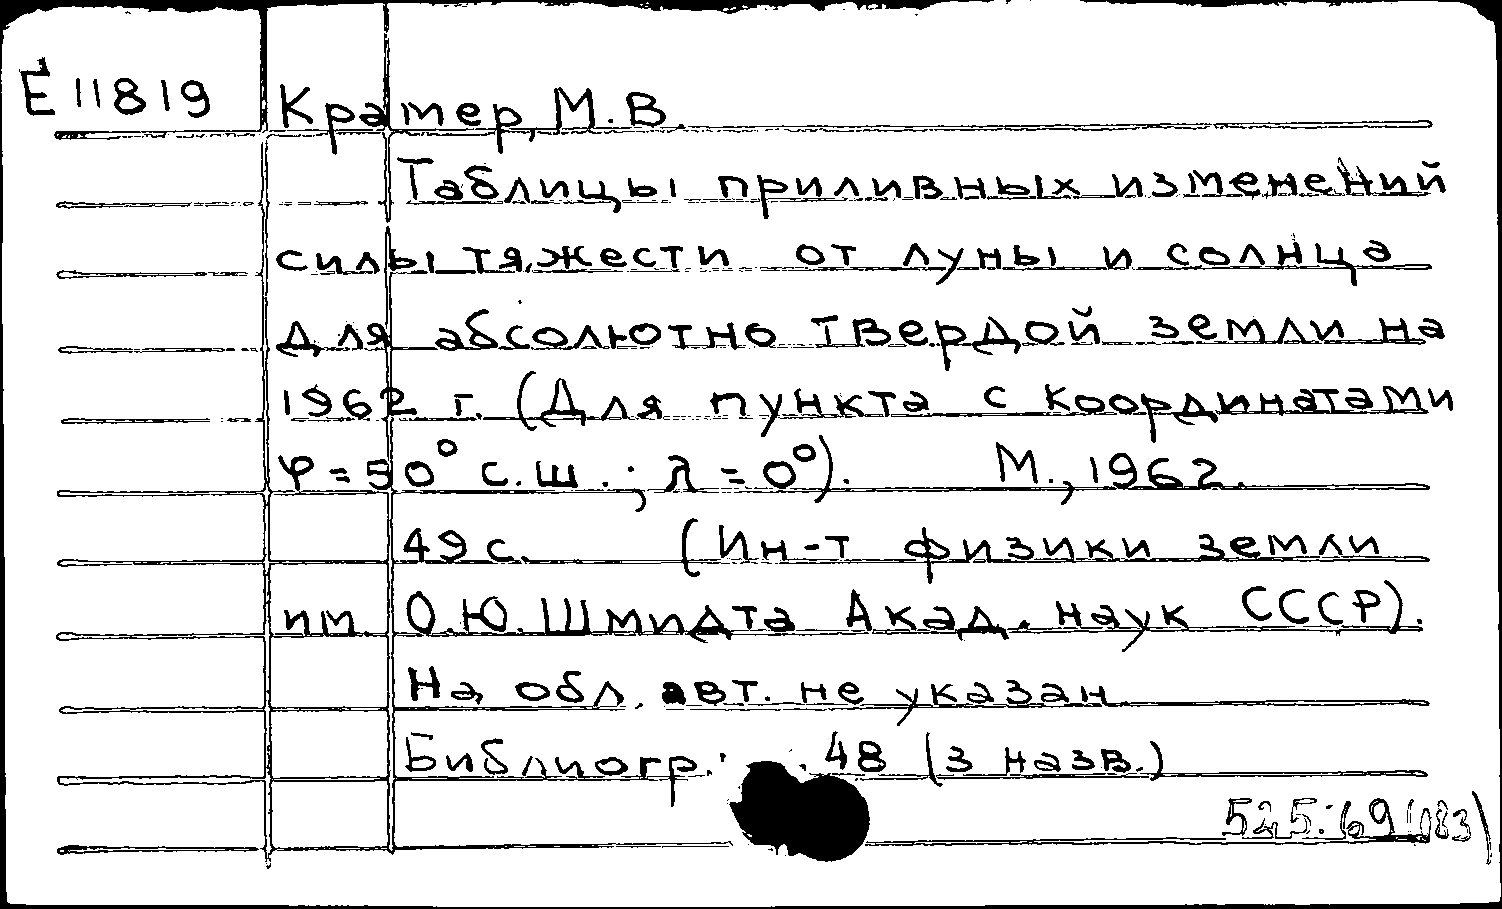 Ё 11819 Крамер, М.В.
Таблицы приливных изменений
силы тяжести от луны и солнца
для абсолютно твердой земли на
1962 г. (Для пункта с координатами
φ = 50° с.ш.; λ = 0°). М., 1962.
49 с. (Ин-т физики земли
им. О.Ю. Шмидта Акад. наук СССР).
На обл. авт. не указан
Библиогр.: 48 (3 назв.)
525:69(083)